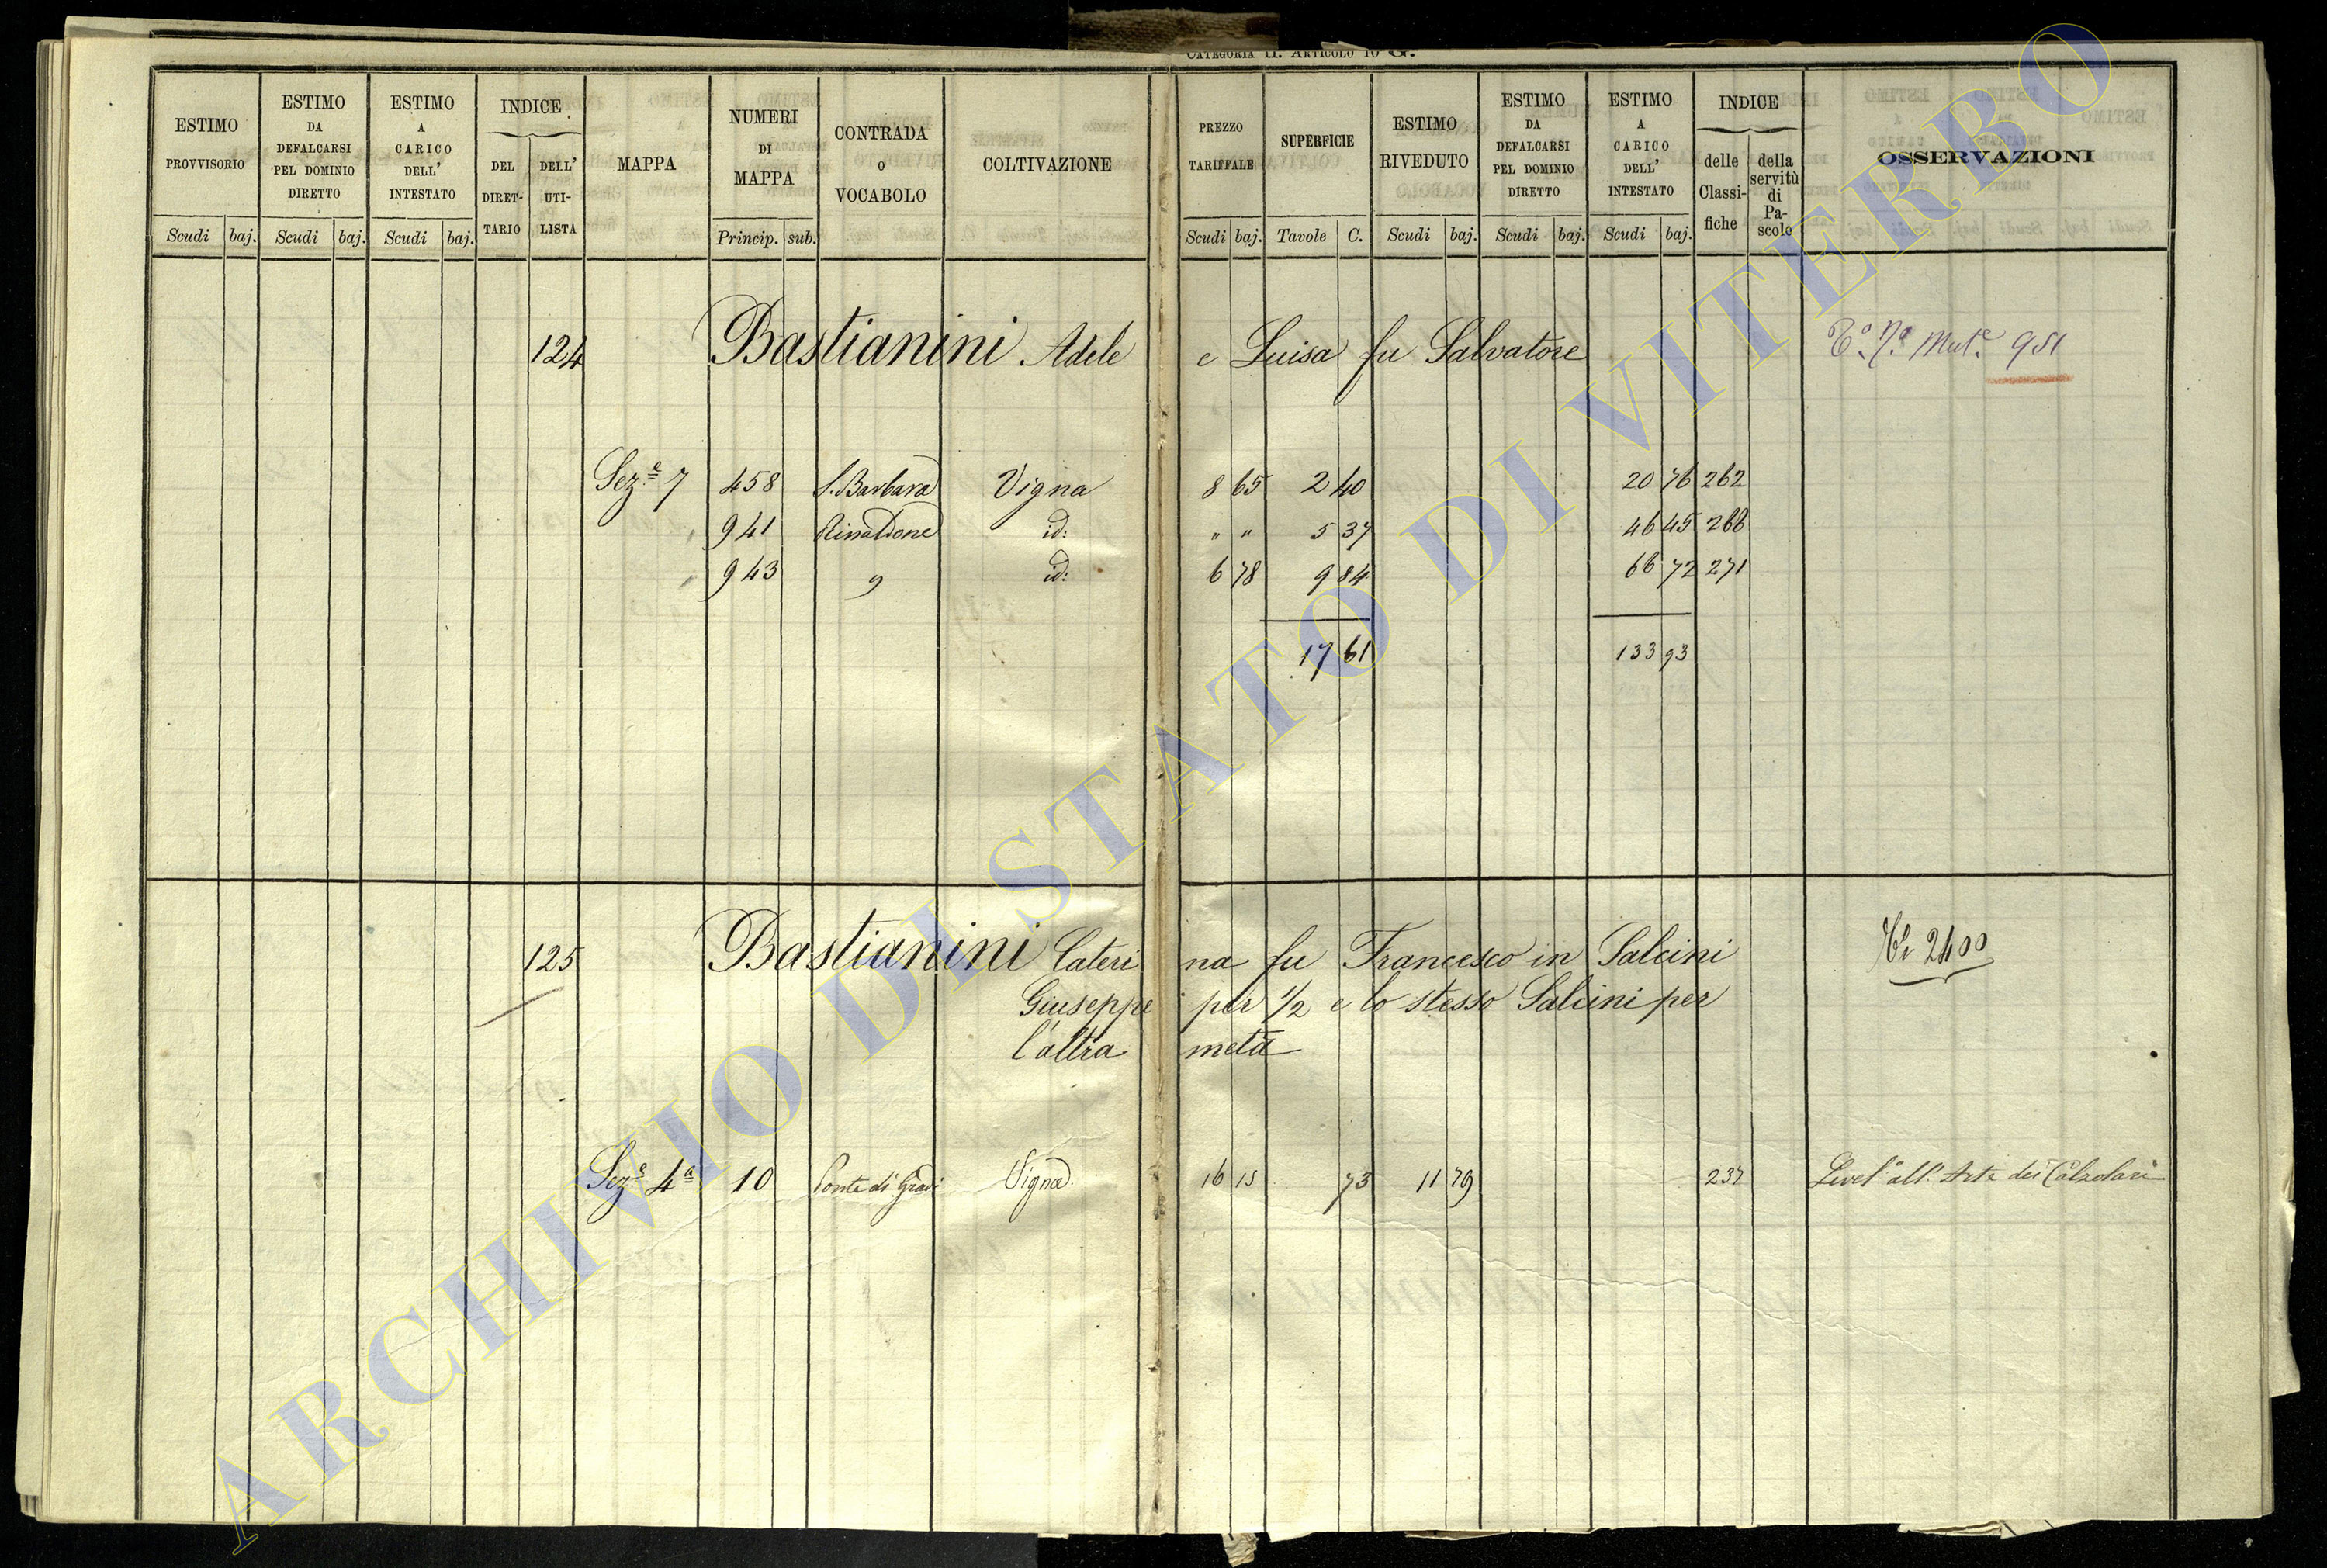 CATEGORIA II. ARTICOLO 10 G.
ESTIMO PROVVISORIO
Scudi baj.
ESTIMO DA DEFALCARSI PEL DOMINIO DIRETTO
Scudi baj.
ESTIMO A CARICO DELL' INTESTATO
Scudi baj.
INDICE
DEL DIRET-TARIO
DELL' UTI-LISTA
MAPPA
NUMERI DI MAPPA
Princip. sub.
CONTRADA o VOCABOLO
COLTIVAZIONE
PREZZO TARIFFALE
Scudi baj.
SUPERFICIE
Tavole C.
ESTIMO RIVEDUTO
Scudi baj.
ESTIMO DA DEFALCARSI PEL DOMINIO DIRETTO
Scudi baj.
ESTIMO A CARICO DELL' INTESTATO
Scudi baj.
INDICE
delle Classi-fiche
della servitù di Pa-scolo
OSSERVAZIONI
124 Bastianini Adele e Luisa fu Salvatore Mut.e 951
Sez.e 7 458 S. Barbara Vigna 8 65 2 40 20 76 262
" 941 Rinaldone id: " " 5 37 46 45 268
" 943 " id: 6 78 9 84 66 72 271
17 61 133 93
125 Bastianini Cateri na fu Francesco in Salcini 2400
Giuseppe per 1/2 e lo stesso Salcini per
l'altra metà
Sez.e 4a 10 Ponte di Gradi Vigna 16 15 73 11 79 237 Livel.o all'Arte dei Calzolari
ARCHIVIO DI STATO DI VITERBO